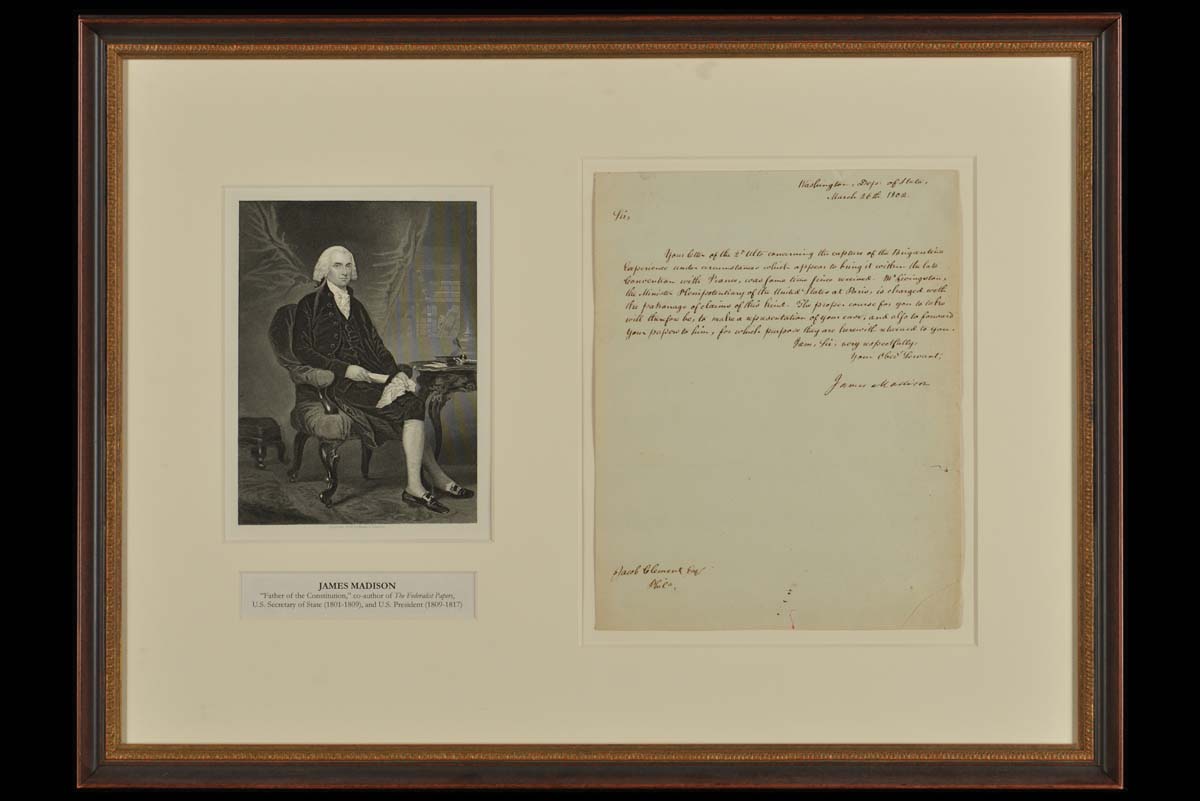 Washington, Dep. of State,
March 26th. 1802.
Sir,
Your letter of the 2d. Ulto concerning the capture of the Brigantine
Experience under circumstances which appear to bring it within the late
Convention with France, was some time since received. Mr Livingston,
the Minister Plenipotentiary of the United States at Paris, is charged with
the patronage of claims of this kind. The proper course for you to take
will therefore be, to make a representation of your case, and also to forward
your papers to him, for which purpose they are herewith returned to you.
I am, Sir, very respectfully,
Your Obed. Servant,
James Madison
Jacob Clement Esq
Phila.
JAMES MADISON
“Father of the Constitution,” co-author of The Federalist Papers,
U.S. Secretary of State (1801-1809), and U.S. President (1809-1817)